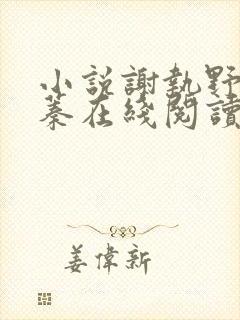 小說謝執野
蓁在綫閱讀
姜偉新